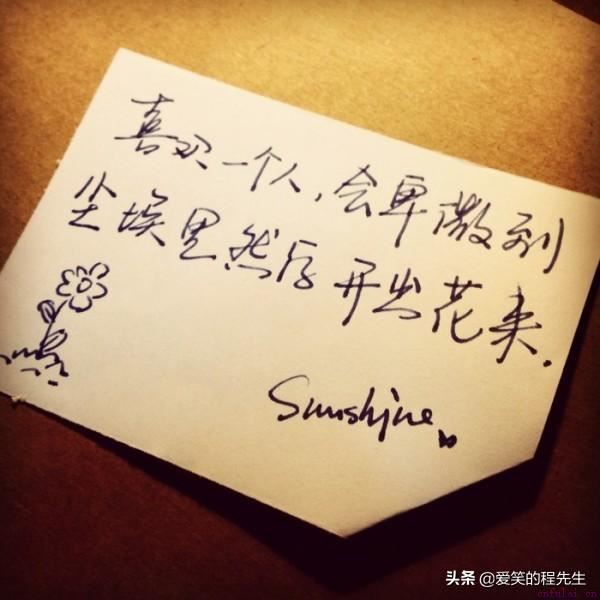 喜欢一个人，会卑微到
尘埃里然后开出花来.
Sunshine
头条 @爱笑的程先生
cnfulai.cn